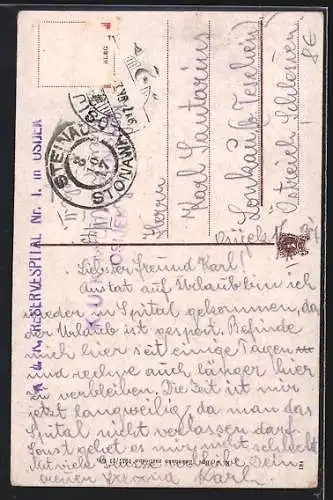 K. u. k. RESERVESPITAL Nr. 1. in OSIJEK
STEINAU
STONAWA
Herrn
Karl Santarius
Lonkau b/Teschen
Östreich Schlesien
8€
Liebster Freund Karl!
Anstat auf Urlaub bin ich
wieder in Spital gekommen, da
der Urlaub ist gespert. Befinde
mich hier seit einige Tagen
und rechne auch länger hier
zu verbleiben. Die Zeit ist mir
jetzt langweilig, da man das
Spital nicht verlassen darf.
Sonst gebet es mir nicht schlecht
Mit viele Dein
Freund Karl